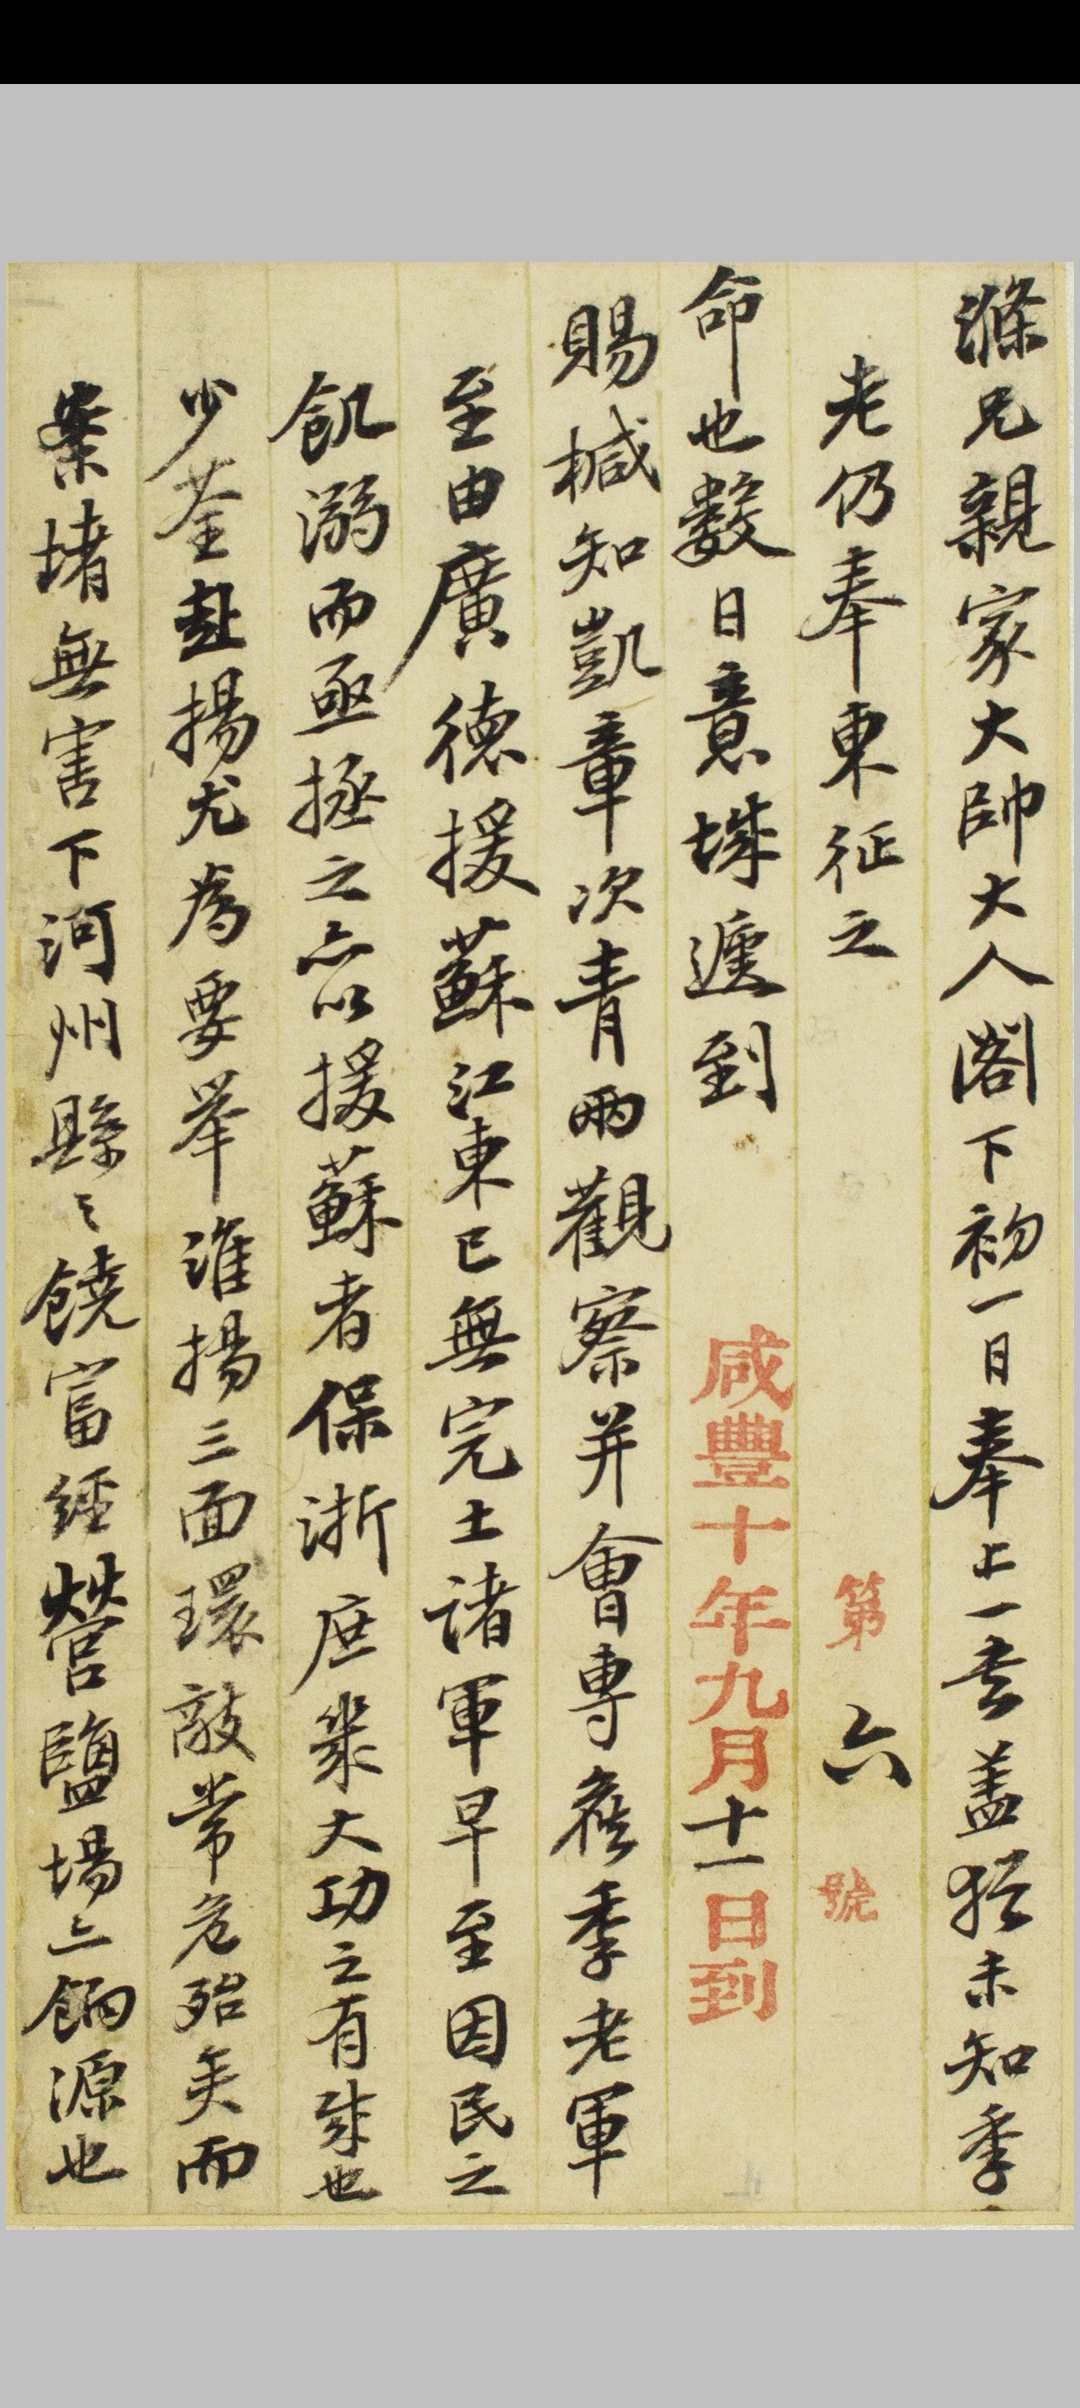 滌兄親家大帥大人閣下初一日奉上一書蓋猶未知季
老仍奉東征之
第六號
命也數日意城遞到
咸豐十年九月十一日到
賜椷知凱章次青兩觀察并會專候季老軍
至由廣德援蘇江東已無完土諸軍早至因民之
飢溺而亟拯之亦以援蘇者保浙庶幾大功之有成也
少荃赴揚尤為要舉淮揚三面環敵常危殆矣而
案堵無害下河州縣々饒富經營鹽場亦餉源也